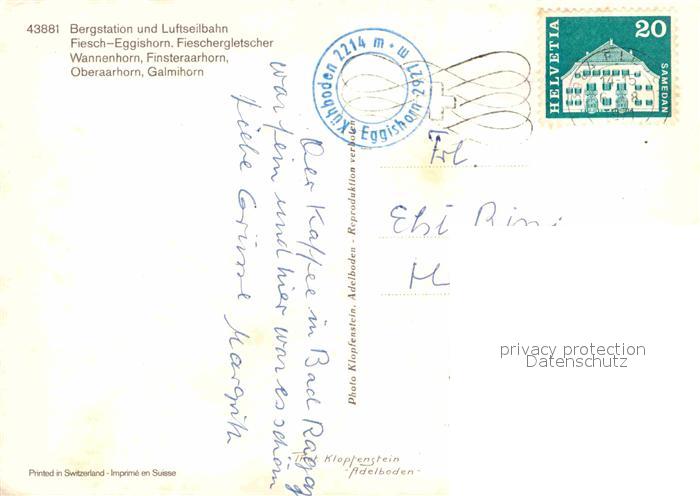 43881 Bergstation und Luftseilbahn
Fiesch-Eggishorn. Fieschergletscher
Wannenhorn, Finsteraarhorn,
Oberaarhorn, Galmihorn
Kühboden 2214 m • Eggishorn 2927 m •
HELVETIA
20
SAMEDAN
Der Kaffee in Bad Ragaz
war fein und hier war es schön
Liebe Grüsse Margrith
Photo Klopfenstein, Adelboden - Reproduktion verboten
Frl.
Elsi
privacy protection
Datenschutz
Thet Klopfenstein
-Adelboden-
Printed in Switzerland - Imprimé en Suisse